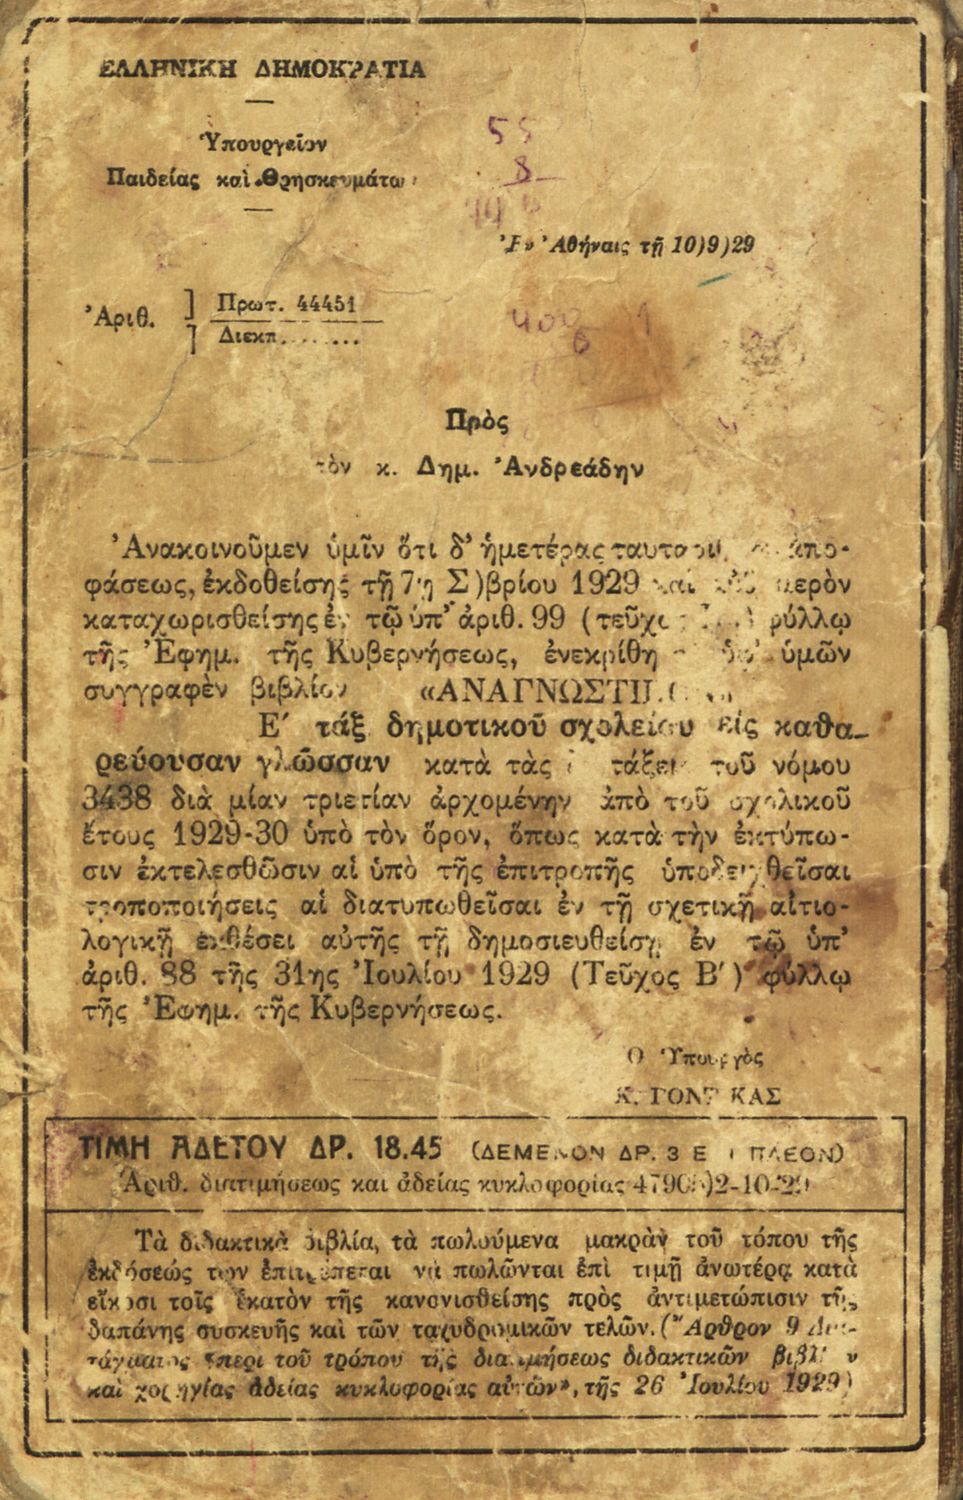 ΕΛΛΗΝΙΚΗ ΔΗΜΟΚΡΑΤΙΑ
Ὑπουργεῖον
Παιδείας καὶ Θρησκευμάτω
55
8
Ἐν Ἀθήναις τῇ 10)9)29
Ἀριθ. ] Πρωτ. 44451
] Διεκπ.......
Πρὸς
τὸν κ. Δημ. Ἀνδρεάδην
Ἀνακοινοῦμεν ὑμῖν ὅτι δ' ἡμετέρας ἀπο-
φάσεως, ἐκδοθείσης τῇ 7ῃ Σ)βρίου 1929 καὶ
καταχωρισθείσης ἐν τῷ ὑπ' ἀριθ. 99 φύλλῳ
τῆς Ἐφημ. τῆς Κυβερνήσεως, ἐνεκρίθη ὑμῶν
συγγραφὲν βιβλίον
Ε΄ τάξ δημοτικοῦ σχολείου εἰς καθα-
ρεύουσαν γλῶσσαν κατὰ τὰς τοῦ νόμου
3438 διὰ μίαν τριετίαν ἀρχομένην ἀπὸ τοῦ σχολικοῦ
ἔτους 1929-30 ὑπὸ τὸν ὅρον, ὅπως κατὰ τὴν ἐκτύπω-
σιν ἐκτελεσθῶσιν αἱ ὑπὸ τῆς ἐπιτροπῆς ὑποδειχθεῖσαι
τροποποιήσεις αἱ διατυπωθεῖσαι ἐν τῇ σχετικῇ αἰτιο-
λογικῇ ἐκθέσει αὐτῆς τῇ δημοσιευθείσῃ ἐν τῷ ὑπ'
ἀριθ. 88 τῆς 31ης Ἰουλίου 1929 (Τεῦχος Β΄) φύλλῳ
τῆς Ἐφημ. τῆς Κυβερνήσεως.
Ο Ὑπουργὸς
Κ. ΓΟΝΤΙΚΑΣ
ΤΙΜΗ ΑΔΕΤΟΥ ΔΡ. 18.45 (ΔΕΜΕΝΟΝ ΔΡ. 3 ΕΠΙ ΠΛΕΟΝ)
Ἀριθ. διατιμήσεως καὶ ἀδείας κυκλοφορίας
Τὰ διδακτικὰ βιβλία, τὰ πωλούμενα μακρὰν τοῦ τόπου τῆς
ἐκδόσεώς των ἐπιτρέπεται νὰ πωλῶνται ἐπὶ τιμῇ ἀνωτέρᾳ κατὰ
εἴκοσι τοῖς ἑκατὸν τῆς κανονισθείσης πρὸς ἀντιμετώπισιν τῆς
δαπάνης συσκευῆς καὶ τῶν ταχυδρομικῶν τελῶν. (Ἄρθρον 9 Δια-
τάγματος «περι τοῦ τρόπου τῆς διατιμήσεως διδακτικῶν
καὶ χορηγίας ἀδείας κυκλοφορίας αὐτῶν», τῆς 26 Ἰουλίου 1929)